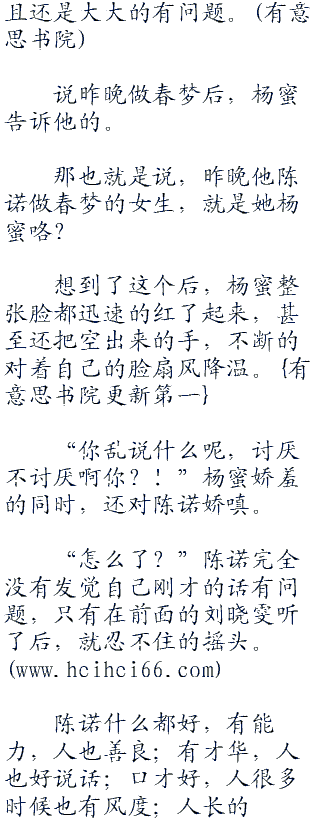 且还是大大的有问题。(有意
思书院)
说昨晚做春梦后，杨蜜
告诉他的。
那也就是说，昨晚他陈
诺做春梦的女生，就是她杨
蜜咯?
想到了这个后，杨蜜整
张脸都迅速的红了起来，甚
至还把空出来的手，不断的
对着自己的脸扇风降温。{有
意思书院更新第一}
“你乱说什么呢，讨厌
不讨厌啊你?！”杨蜜娇羞
的同时，还对陈诺娇嗔。
“怎么了?”陈诺完全
没有发觉自己刚才的话有问
题，只有在前面的刘晓雯听
了后，就忍不住的摇头。
(www.hcihci66.com)
陈诺什么都好，有能
力，人也善良；有才华，人
也好说话；口才好，人很多
时候也有风度；人长的